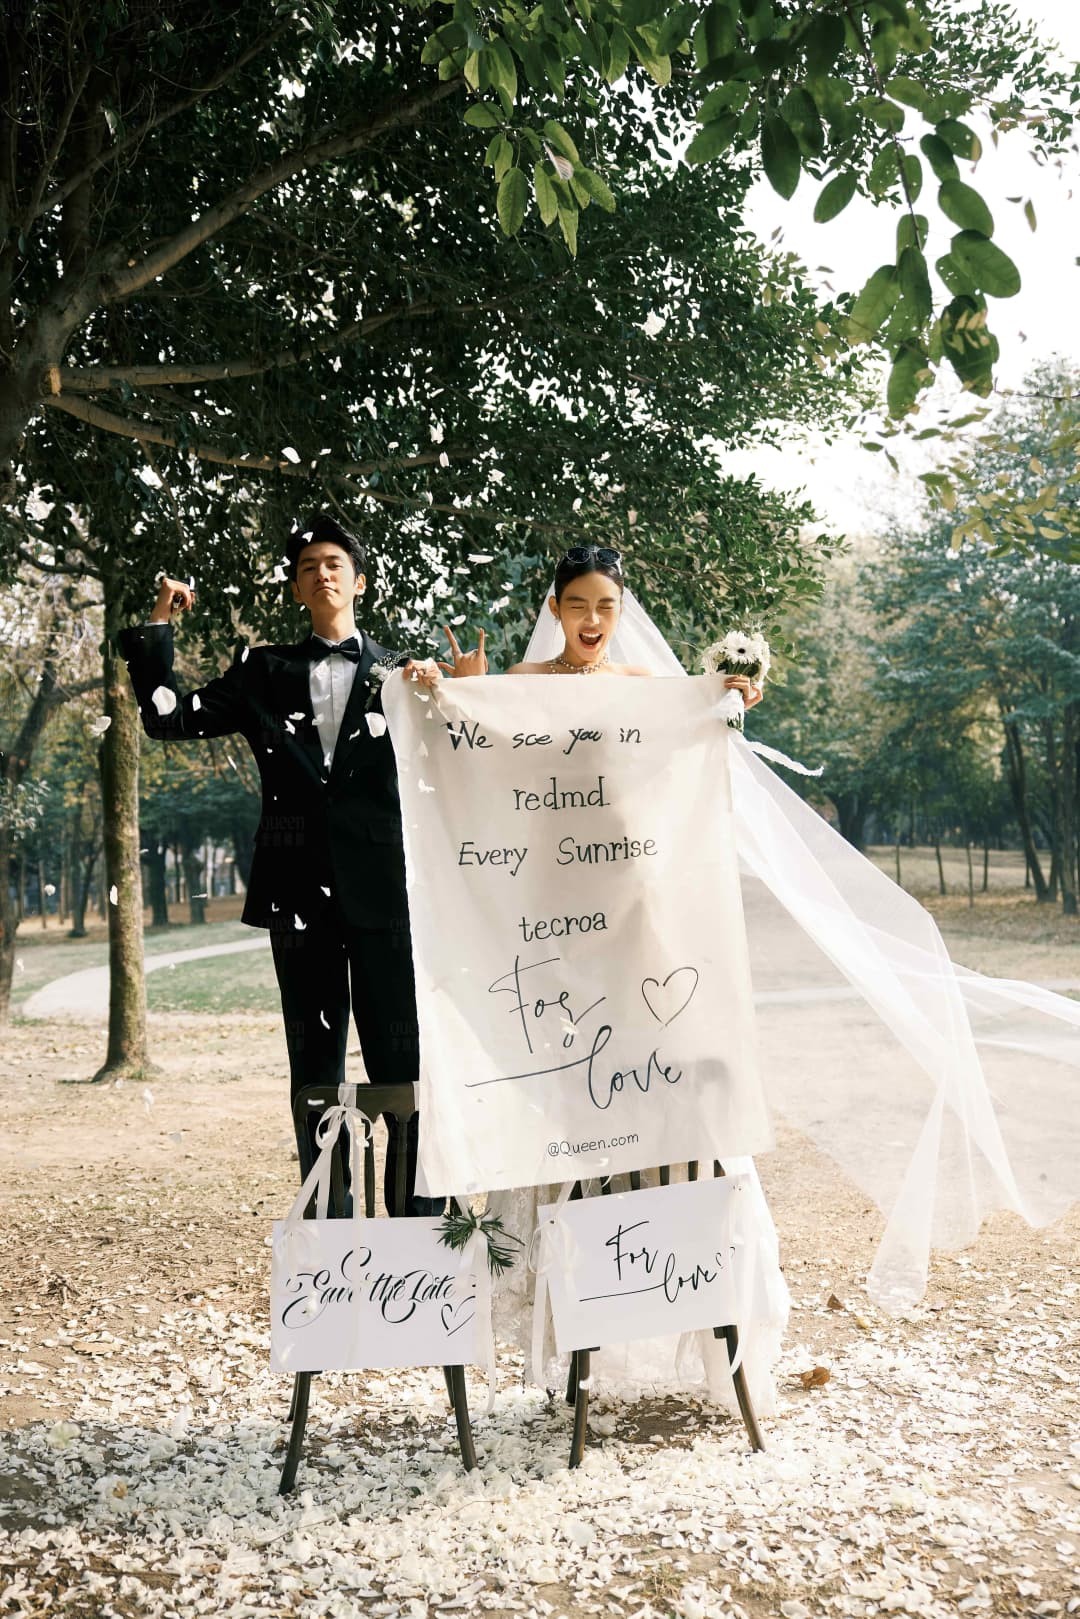 We see you in
redmd
Every Sunrise
tecroa
For
love
@Queen.com
Save the Date
For
love
queen